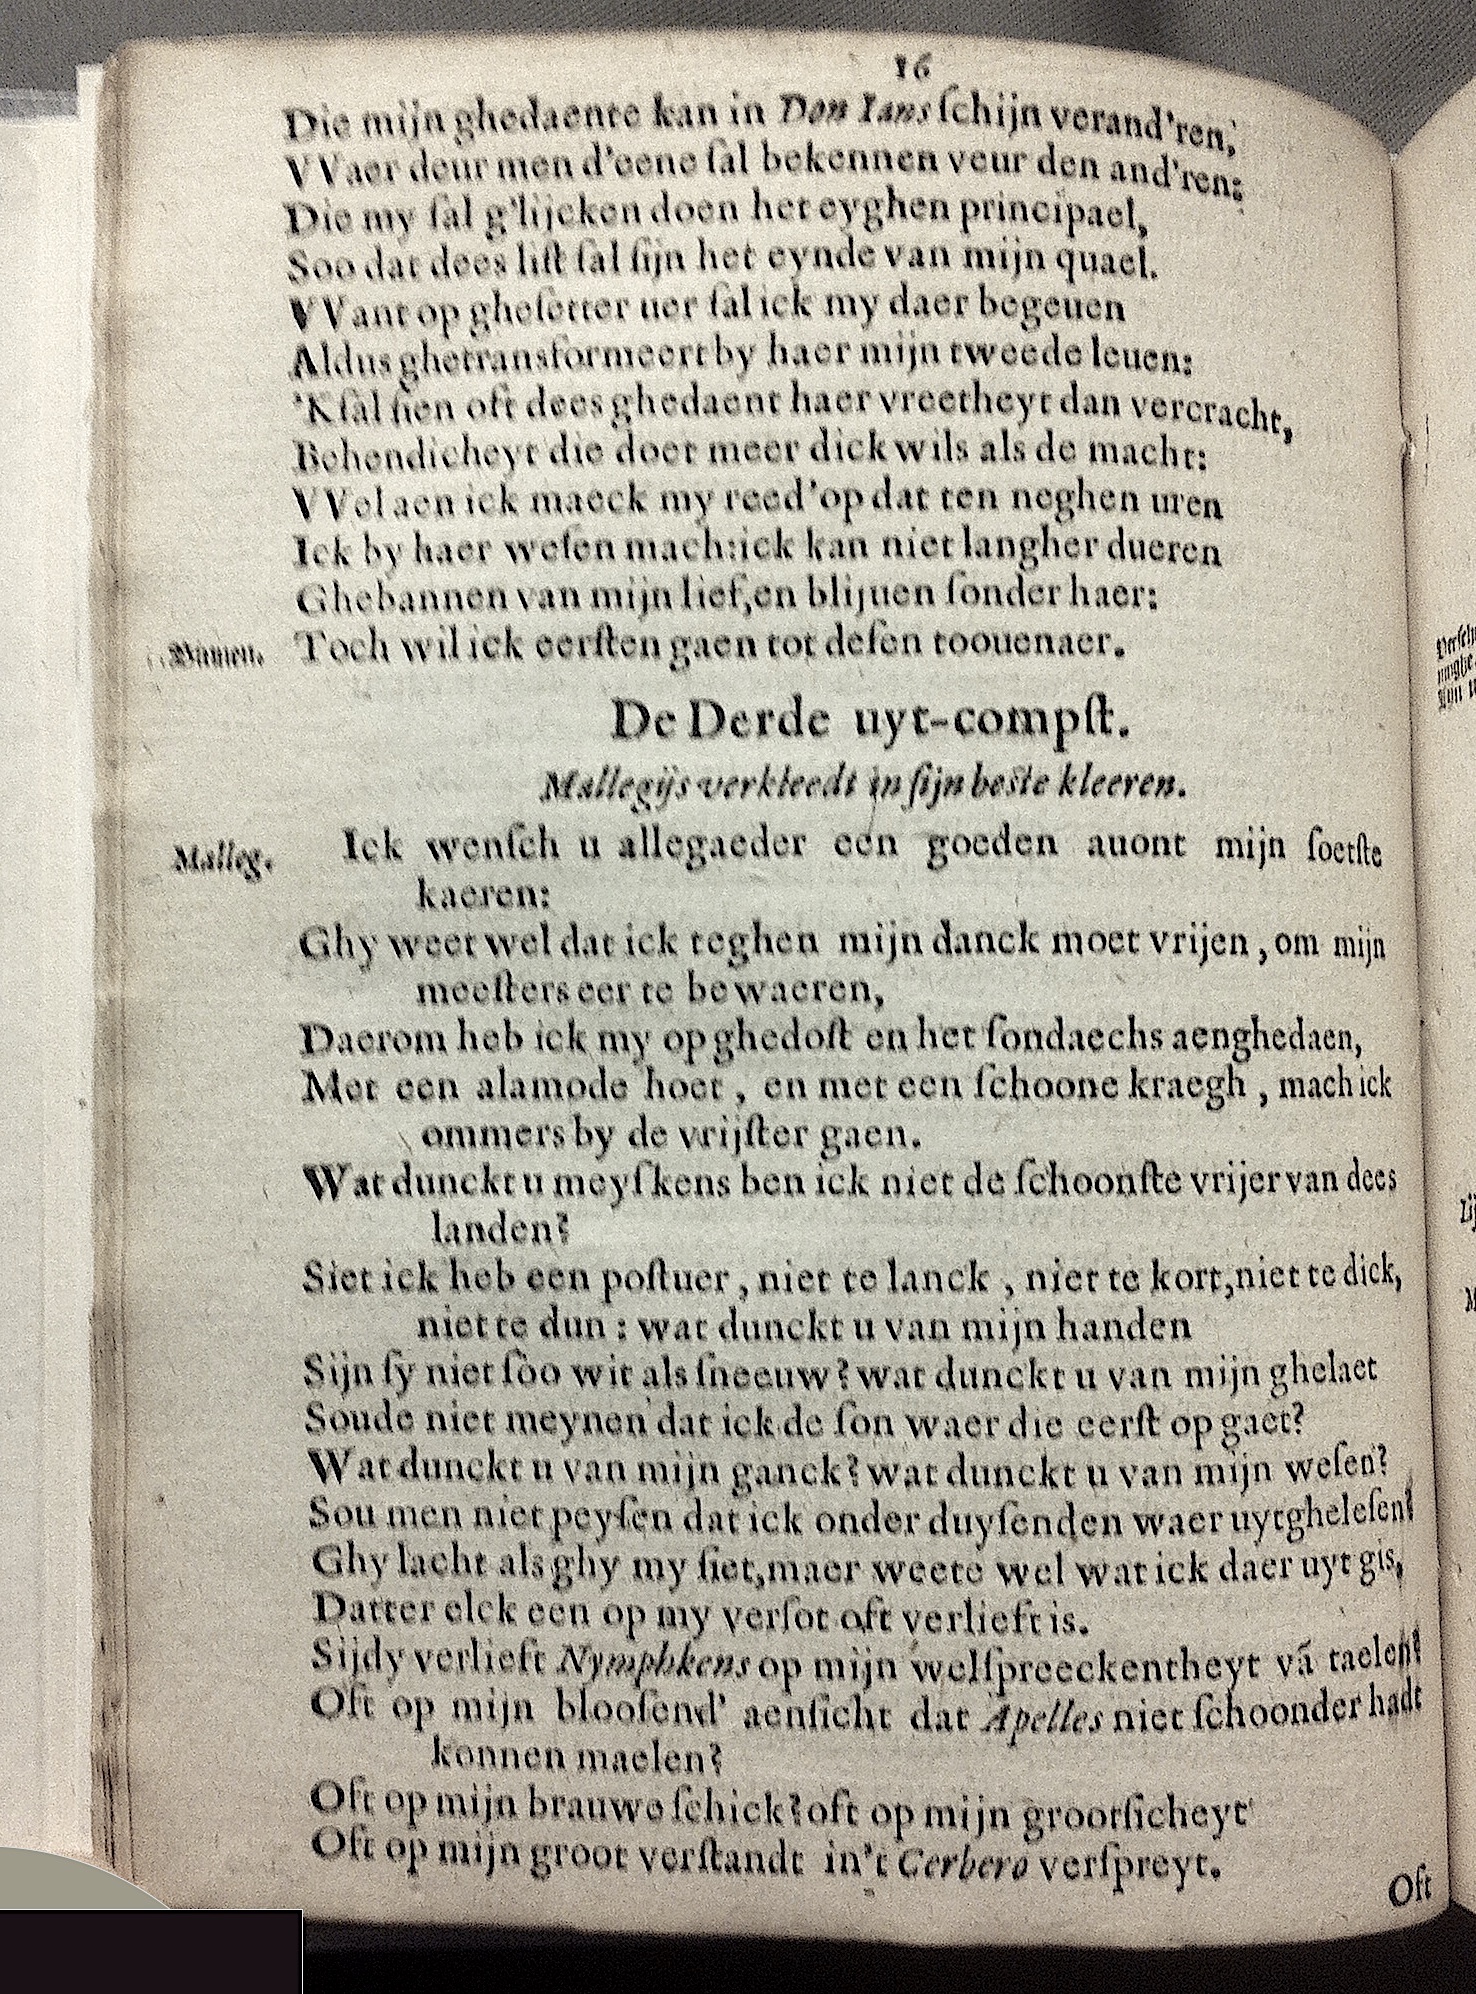 16
Die mijn ghedaente kan in Don Ians ſchijn verand'ren,
VVaer deur men d'eene ſal bekennen veur den and'ren:
Die my ſal g'lijcken doen het eyghen principael,
Soo dat dees liſt ſal ſijn het eynde van mijn quael.
VVant op gheſetter uer ſal ick my daer begeuen
Aldus ghetransformeert by haer mijn tweede leuen:
'K ſal ſien oft dees ghedaent haer vreetheyt dan vercracht,
Behendicheyt die doet meer dickwils als de macht:
VVel aen ick maeck my reed' op dat ten neghen uren
Ick by haer weſen mach: ick kan niet langher dueren
Ghebannen van mijn lief, en blijuen ſonder haer:
Binnen. Toch wil ick eerſten gaen tot deſen toouenaer.
De Derde uyt-compſt.
Mallegijs verkleedt in ſijn beſte kleeren.
Malleg. Ick wenſch u allegaeder een goeden auont mijn ſoetſte
kaeren:
Ghy weet wel dat ick teghen mijn danck moet vrijen, om mijn
meeſters eer te bewaeren,
Daerom heb ick my op ghedoſt en het ſondaechs aenghedaen,
Met een alamode hoet, en met een ſchoone kraegh, mach ick
ommers by de vrijſter gaen.
Wat dunckt u meyſkens ben ick niet de ſchoonſte vrijer van dees
landen?
Siet ick heb een poſtuer, niet te lanck, niet te kort, niet te dick,
niet te dun: wat dunckt u van mijn handen
Sijn ſy niet ſoo wit als ſneeuw? wat dunckt u van mijn ghelaet
Soude niet meynen dat ick de ſon waer die eerſt op gaet?
Wat dunckt u van mijn ganck? wat dunckt u van mijn weſen?
Sou men niet peyſen dat ick onder duyſenden waer uytgheleſen?
Ghy lacht als ghy my ſiet, maer weete wel wat ick daer uyt gis,
Datter elck een op my verſot oft verlieft is.
Sijdy verlieft Nymphkens op mijn welſpreeckentheyt vã taelen?
Oft op mijn blooſend' aenſicht dat Apelles niet ſchoonder hadt
konnen maelen?
Oft op mijn brauwe ſchick? oft op mijn grootſicheyt
Oft op mijn groot verſtandt in't Cerbero verſpreyt.
Oft